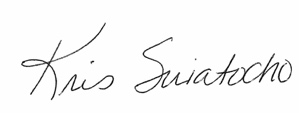 Kris Swiatocho